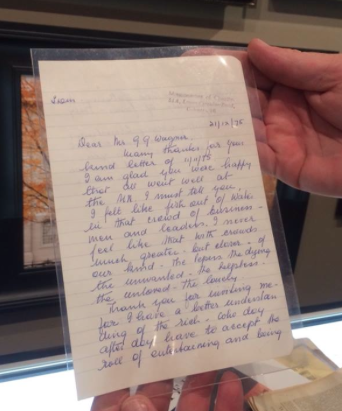 Dear Mr. G.G. Wagner.
Many thanks for your
kind letter of
I am glad you were happy
that all went well at
the I must tell you,
I felt like fish out of water
in that crowd of business-
men and leaders. I never
feel like that with crowds
much greater - but closer - of
our kind - the lepers the dying
the unwanted - the helpless -
the unloved - The lonely.
Thank you for inviting me -
for I have a better understan
ding of the rich - who day
after day have to accept the
roll of entertaining and being